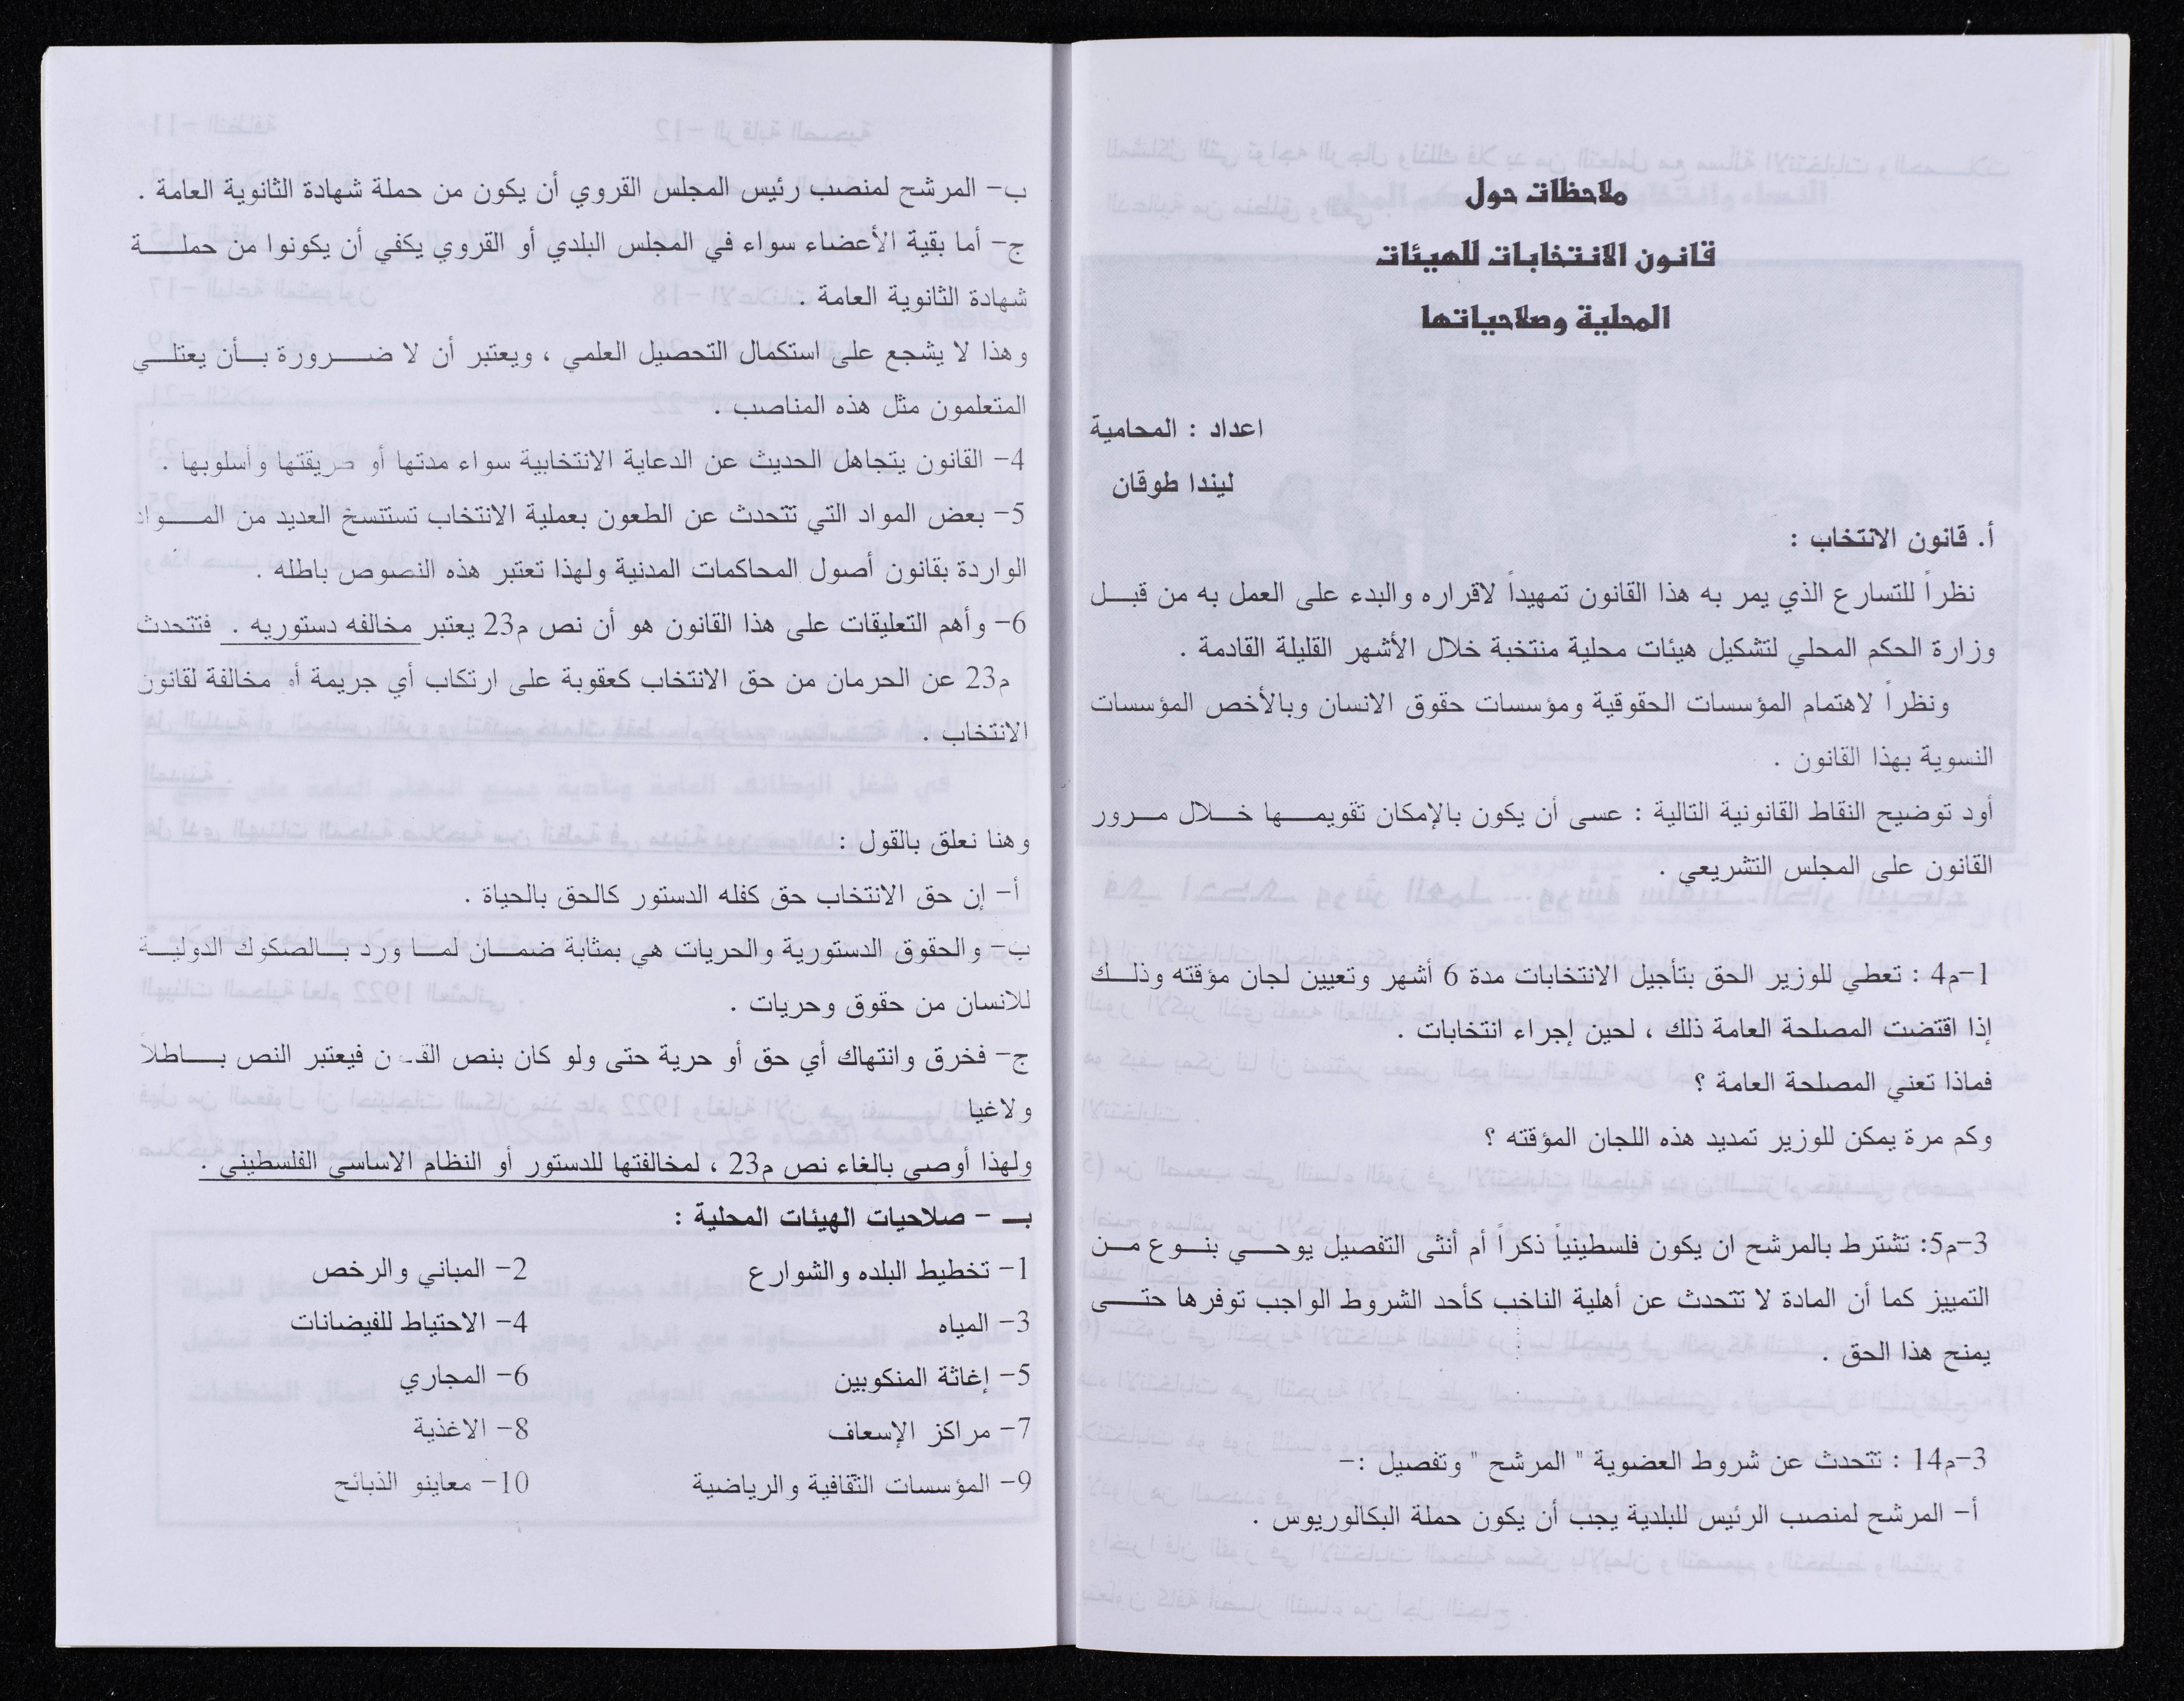 ملاحظات حول
قانون الانتخابات للهيئات
المحلية وصلاحياتها
اعداد : المحامية
ليندا طوقان
أ. قانون الانتخاب :
نظراً للتسارع الذي يمر به هذا القانون تمهيداً لاقراره والبدء على العمل به من قبل
وزارة الحكم المحلي لتشكيل هيئات محلية منتخبة خلال الأشهر القليلة القادمة .
ونظراً لاهتمام المؤسسات الحقوقية ومؤسسات حقوق الانسان وبالأخص المؤسسات
النسوية بهذا القانون .
أود توضيح النقاط القانونية التالية : عسى أن يكون بالإمكان تقويمها خلال مرور
القانون على المجلس التشريعي .
1-م4 : تعطي للوزير الحق بتأجيل الانتخابات مدة 6 أشهر وتعيين لجان مؤقته وذلك
إذا اقتضت المصلحة العامة ذلك ، لحين إجراء انتخابات .
فماذا تعني المصلحة العامة ؟
وكم مرة يمكن للوزير تمديد هذه اللجان المؤقته ؟
3-م5: تشترط بالمرشح ان يكون فلسطينياً ذكراً أم أنثى التفصيل يوحي بنوع من
التمييز كما أن المادة لا تتحدث عن أهلية الناخب كأحد الشروط الواجب توفرها حتى
يمنح هذا الحق .
3-م14 : تتحدث عن شروط العضوية " المرشح " وتفصيل :-
أ- المرشح لمنصب الرئيس للبلدية يجب أن يكون حملة البكالوريوس .
ب- المرشح لمنصب رئيس المجلس القروي أن يكون من حملة شهادة الثانوية العامة .
ج- أما بقية الأعضاء سواء في المجلس البلدي أو القروي يكفي أن يكونوا من حملة
شهادة الثانوية العامة .
وهذا لا يشجع على استكمال التحصيل العلمي ، ويعتبر أن لا ضرورة بأن يعتلي
المتعلمون مثل هذه المناصب .
4- القانون يتجاهل الحديث عن الدعاية الانتخابية سواء مدتها أو طريقتها وأسلوبها .
5- بعض المواد التي تتحدث عن الطعون بعملية الانتخاب تستنسخ العديد من المواد
الواردة بقانون أصول المحاكمات المدنية ولهذا تعتبر هذه النصوص باطله .
6- وأهم التعليقات على هذا القانون هو أن نص م23 يعتبر مخالفه دستوريه . فتتحدث
م23 عن الحرمان من حق الانتخاب كعقوبة على ارتكاب أي جريمة أو مخالفة لقانون
الانتخاب .
وهنا نعلق بالقول :
أ- إن حق الانتخاب حق كفله الدستور كالحق بالحياة .
ب- والحقوق الدستورية والحريات هي بمثابة ضمان لما ورد بالصكوك الدولية
للانسان من حقوق وحريات .
ج- فخرق وانتهاك أي حق أو حرية حتى ولو كان بنص القانون فيعتبر النص باطلاً
ولاغيا
ولهذا أوصي بالغاء نص م23 ، لمخالفتها للدستور أو النظام الاساسي الفلسطيني .
بـ - صلاحيات الهيئات المحلية :
1- تخطيط البلده والشوارع 2- المباني والرخص
3- المياه 4- الاحتياط للفيضانات
5- إغاثة المنكوبين 6- المجاري
7- مراكز الإسعاف 8- الاغذية
9- المؤسسات الثقافية والرياضية 10- معاينو الذبائح